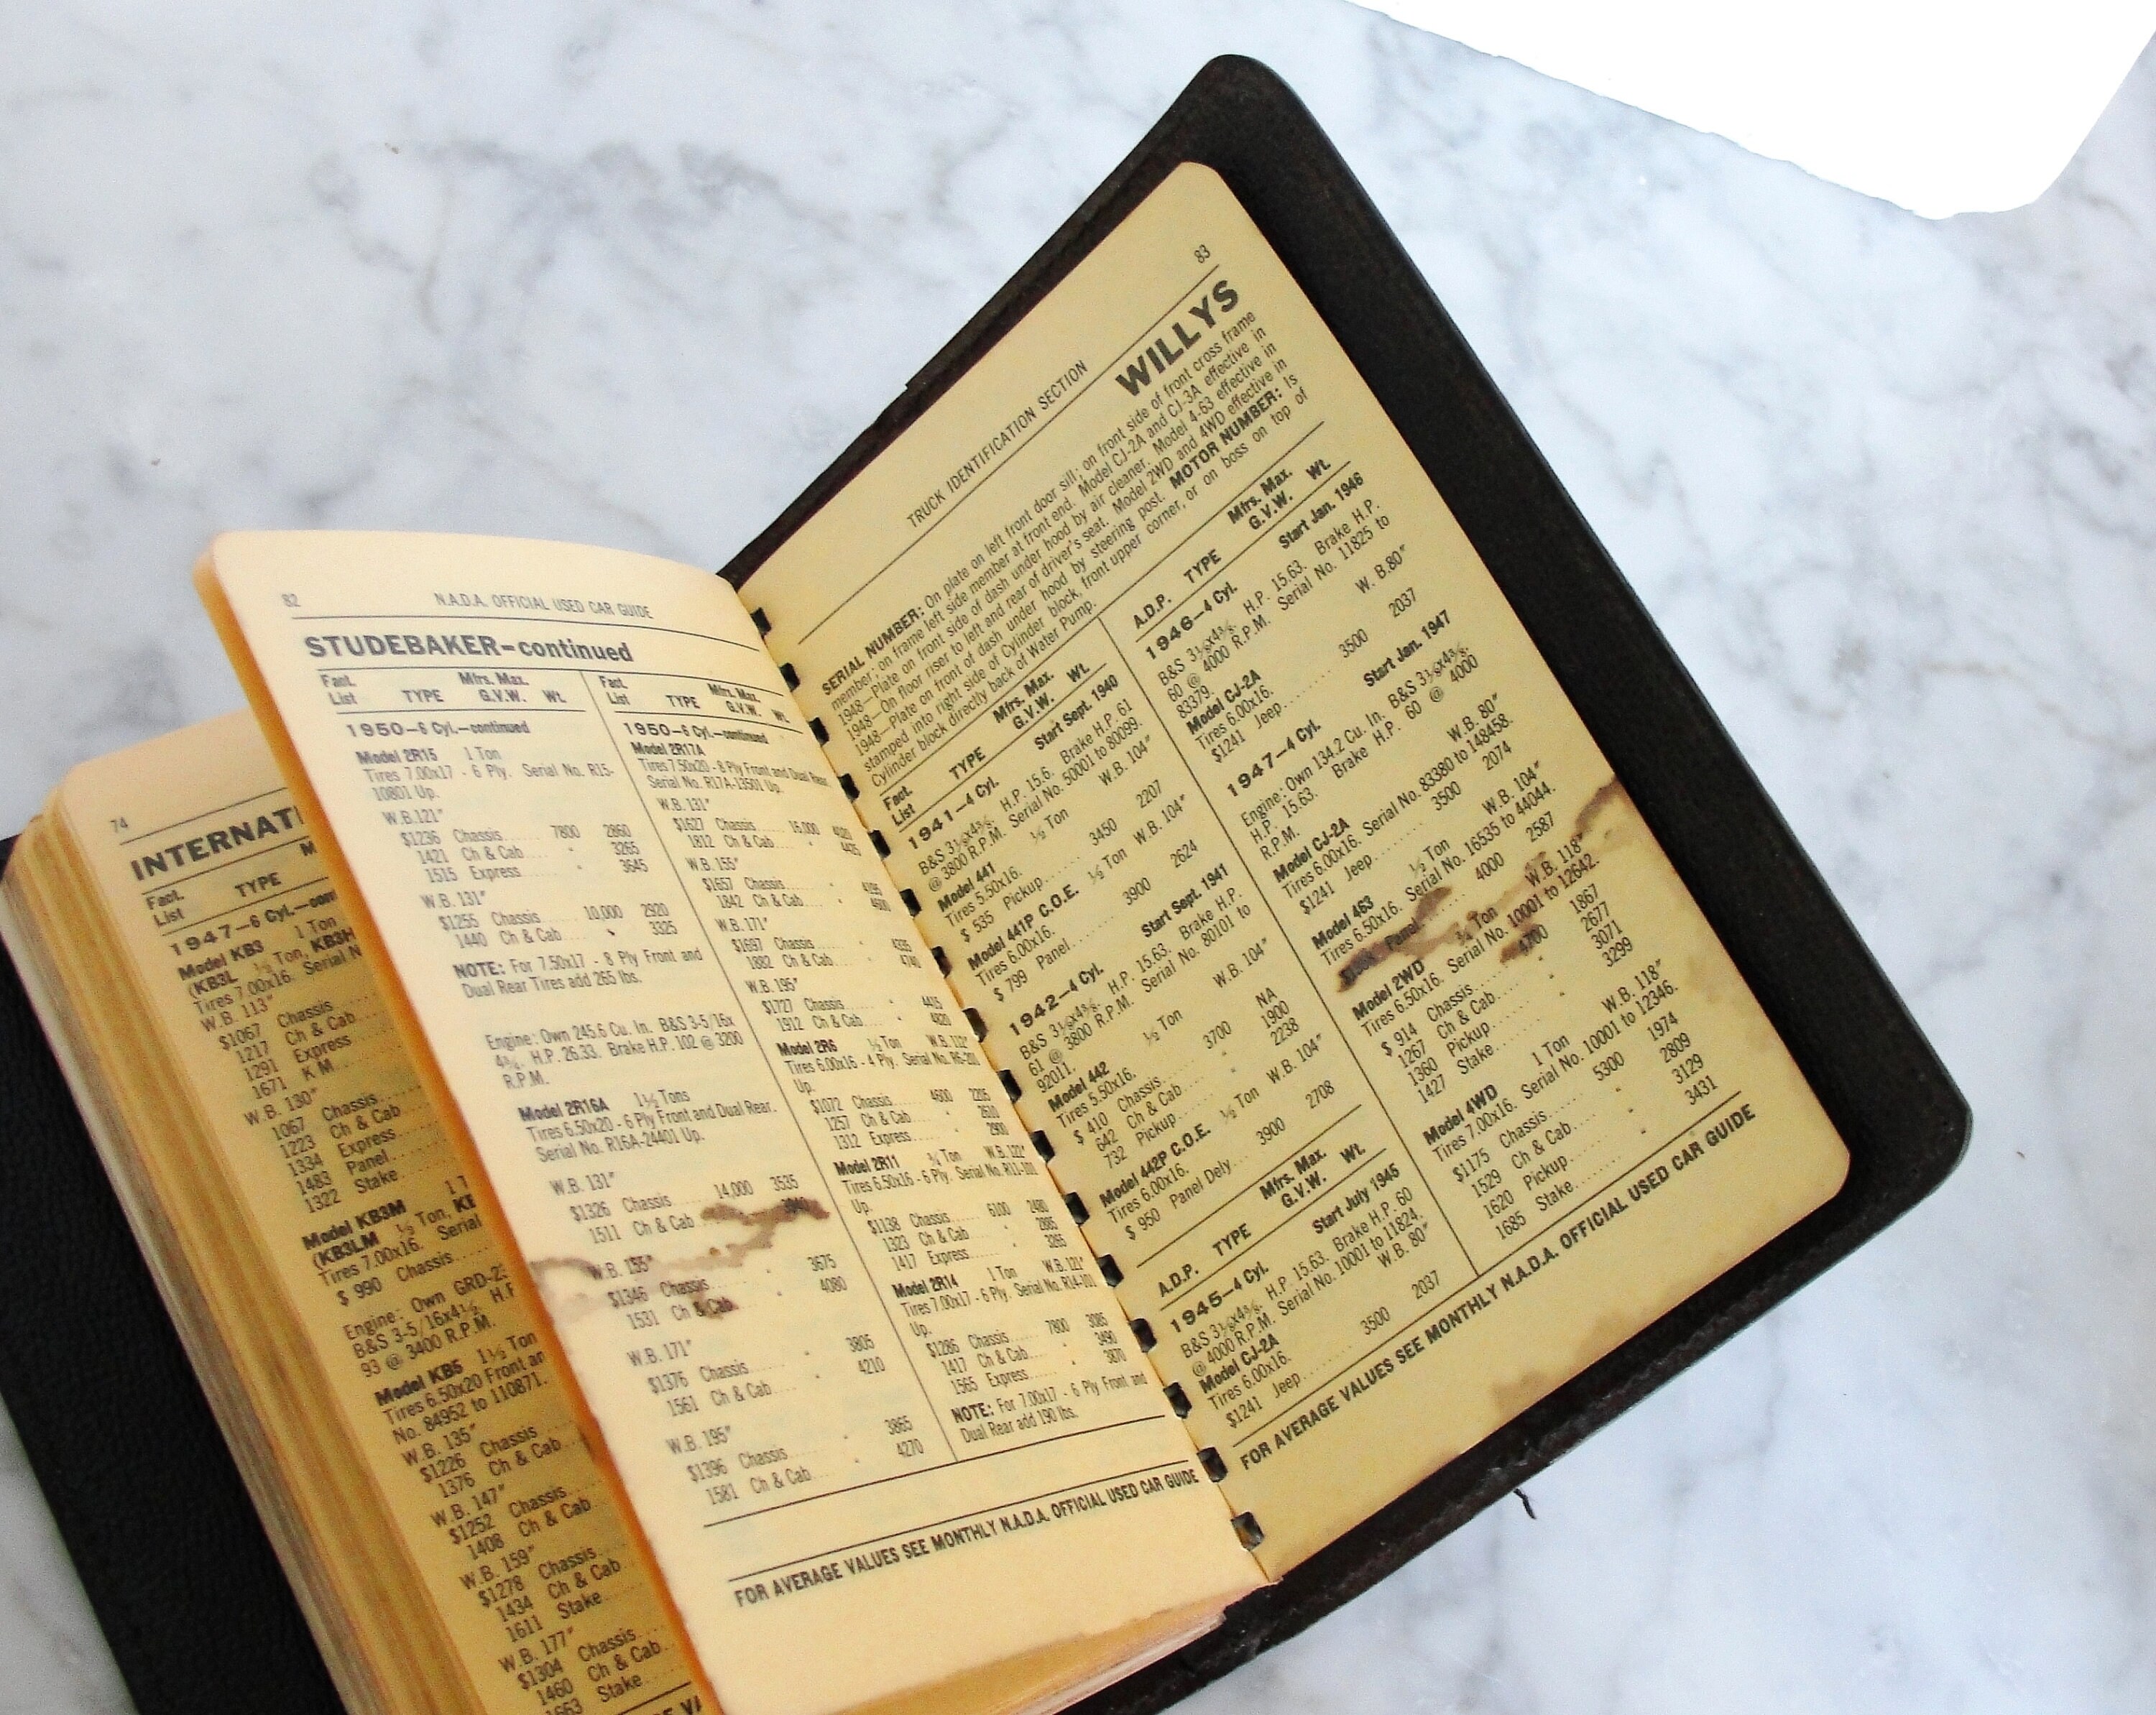 74
INTERNATI
Fact.
List TYPE
1947–6 Cyl.—con
Model KB3 1 Ton
(KB3L ½ Ton, KB3H
Tires 7.00x16. Serial N
W.B. 113"
$1067 Chassis
1217 Ch & Cab
1291 Express
1671 K M
W.B. 130"
1067 Chassis
1223 Ch & Cab
1334 Express
1483 Panel
1322 Stake
Model KB3M 1 T
(KB3LM ½ Ton, KE
Tires 7.00x16. Serial
$ 990 Chassis
Engine: Own GRD-2
B&S 3-5/16x4½. H.F
93 @ 3400 R.P.M.
Model KB5 1½ Ton
Tires 6.50x20 Front an
No. 84952 to 110871.
W.B. 135"
$1226 Chassis
1376 Ch & Cab
W.B. 147"
$1252 Chassis
1408 Ch & Cab
W.B. 159"
$1278 Chassis
1434 Ch & Cab
1611 Stake
W.B. 177"
$1304 Chassis
1460 Ch & Cab
1663 Stake
82 N.A.D.A. OFFICIAL USED CAR GUIDE
STUDEBAKER–continued
Fact. Mfrs. Max.
List TYPE G.V.W. Wt.
1950–6 Cyl.–continued
Model 2R15 1 Ton
Tires 7.00x17 - 6 Ply. Serial No. R15-
10801 Up.
W.B. 121"
$1236 Chassis 7800 2860
1421 Ch & Cab " 3265
1515 Express " 3645
W.B. 131"
$1255 Chassis 10,000 2920
1440 Ch & Cab " 3325
NOTE: For 7.50x17 - 8 Ply Front and
Dual Rear Tires add 265 lbs.
Engine: Own 245.6 Cu. In. B&S 3-5/16x
4¾. H.P. 26.33. Brake H.P. 102 @ 3200
R.P.M.
Model 2R16A 1½ Tons
Tires 6.50x20 - 6 Ply Front and Dual Rear.
Serial No. R16A-24401 Up.
W.B. 131"
$1326 Chassis 14,000 3535
1511 Ch & Cab 3940
W.B. 155"
$1346 Chassis " 3675
1531 Ch & Cab " 4080
W.B. 171"
$1376 Chassis " 3805
1561 Ch & Cab " 4210
W.B. 195"
$1396 Chassis " 3865
1581 Ch & Cab " 4270
Fact. Mfrs. Max.
List TYPE G.V.W. Wt.
1950–6 Cyl.–continued
Model 2R17A
Tires 7.50x20 - 8 Ply Front and Dual Rear.
Serial No. R17A-13501 Up.
W.B. 131"
$1627 Chassis 16,000
1812 Ch & Cab "
W.B. 155"
$1657 Chassis "
1842 Ch & Cab "
W.B. 171"
$1697 Chassis "
1882 Ch & Cab "
W.B. 195"
$1727 Chassis " 4415
1912 Ch & Cab " 4820
Model 2R5 ½ Ton W.B. 112"
Tires 6.00x16 - 4 Ply. Serial No.
Up.
$1072 Chassis 4600
1257 Ch & Cab "
1312 Express "
Model 2R11 ¾ Ton W.B. 122"
Tires 6.50x16 - 6 Ply. Serial No.
Up.
$1138 Chassis 6100 2480
1323 Ch & Cab " 2885
1417 Express " 3265
Model 2R14 1 Ton W.B. 121"
Tires 7.00x17 - 6 Ply. Serial No.
Up.
$1286 Chassis 7800 3085
1417 Ch & Cab " 3490
1565 Express " 3870
NOTE: For 7.00x17 - 6 Ply Front and
Dual Rear add 190 lbs.
FOR AVERAGE VALUES SEE MONTHLY N.A.D.A. OFFICIAL USED CAR GUIDE
TRUCK IDENTIFICATION SECTION 83
WILLYS
SERIAL NUMBER: On plate on left front door sill; on front side of front cross frame
member; on frame left side member at front end. Model CJ-2A and CJ-3A effective in
1948—Plate on front side of dash under hood by air cleaner. Model 4-63 effective in
1948—On floor riser to left and rear of driver's seat. Model 2WD and 4WD effective in
1948—Plate on front of dash under hood by steering post. MOTOR NUMBER: Is
stamped into right side of Cylinder block, front upper corner, or on boss on top of
Cylinder block directly back of Water Pump.
Fact. Mfrs. Max.
List TYPE G.V.W. Wt.
1941–4 Cyl. Start Sept. 1940
B&S 3⅛x4⅜. H.P. 15.6. Brake H.P. 61
@ 3800 R.P.M. Serial No. 50001 to 80099.
Model 441 ½ Ton W.B. 104"
Tires 5.50x16.
$ 535 Pickup 3450 2207
Model 441P C.O.E. ½ Ton W.B. 104"
Tires 6.00x16.
$ 799 Panel 3900 2624
1942–4 Cyl. Start Sept. 1941
B&S 3⅛x4⅜. H.P. 15.63. Brake H.P.
61 @ 3800 R.P.M. Serial No. 80101 to
92011.
Model 442 ½ Ton W.B. 104"
Tires 5.50x16.
$ 410 Chassis 3700 NA
642 Ch & Cab " 1900
732 Pickup " 2238
Model 442P C.O.E. ½ Ton W.B. 104"
Tires 6.00x16.
$ 950 Panel Dely 3900 2708
Mfrs. Max.
A.D.P. TYPE G.V.W. Wt.
1945–4 Cyl. Start July 1945
B&S 3⅛x4⅜. H.P. 15.63. Brake H.P. 60
@ 4000 R.P.M. Serial No. 10001 to 11824.
Model CJ-2A W.B. 80"
Tires 6.00x16.
$1241 Jeep 3500 2037
Mfrs. Max.
A.D.P. TYPE G.V.W. Wt.
1946–4 Cyl. Start Jan. 1946
B&S 3⅛x4⅜. H.P. 15.63. Brake H.P.
60 @ 4000 R.P.M. Serial No. 11825 to
83379.
Model CJ-2A W. B. 80"
Tires 6.00x16.
$1241 Jeep 3500 2037
1947–4 Cyl. Start Jan. 1947
Engine: Own 134.2 Cu. In. B&S 3⅛x4⅜.
H.P. 15.63. Brake H.P. 60 @ 4000
R.P.M.
Model CJ-2A W.B. 80"
Tires 6.00x16. Serial No. 83380 to 148458.
$1241 Jeep 3500 2074
Model 463 ½ Ton W.B. 104"
Tires 6.50x16. Serial No. 16535 to 44044.
Panel 4000 2587
Model 2WD ¾ Ton W.B. 118"
Tires 6.50x16. Serial No. 10001 to 12642.
$ 914 Chassis 4700 1867
1267 Ch & Cab " 2677
1360 Pickup " 3071
1427 Stake " 3299
Model 4WD 1 Ton W.B. 118"
Tires 7.00x16. Serial No. 10001 to 12346.
$1175 Chassis 5300 1974
1529 Ch & Cab " 2809
1620 Pickup " 3129
1685 Stake " 3431
FOR AVERAGE VALUES SEE MONTHLY N.A.D.A. OFFICIAL USED CAR GUIDE